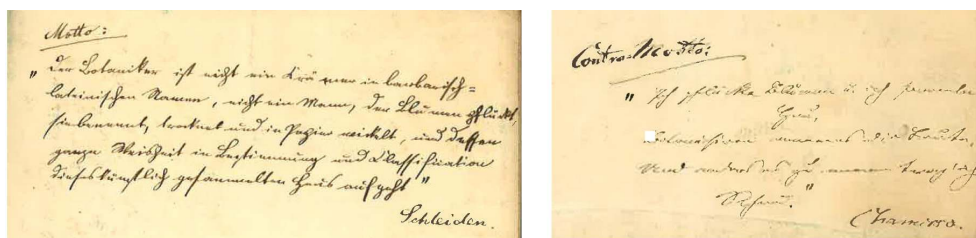 Motto:
„ Der Botaniker ist nicht ein Krämer in barbarisch=
lateinischen Namen, nicht ein Mann, der Blumen pflückt,
sie benennt, trocknet und in Papier wickelt, und dessen
ganze Weisheit in Bestimmung und Classification
dieses künstlich gesammelten Heus aufgeht “
Schleiden.
Contra-Motto:
„ Ich pflücke Blumen u. ich sammle
Heu,
Botanisiren nennens die Leute,
Und anders es zu nennen trag ich
Scheu.“
Chamisso.